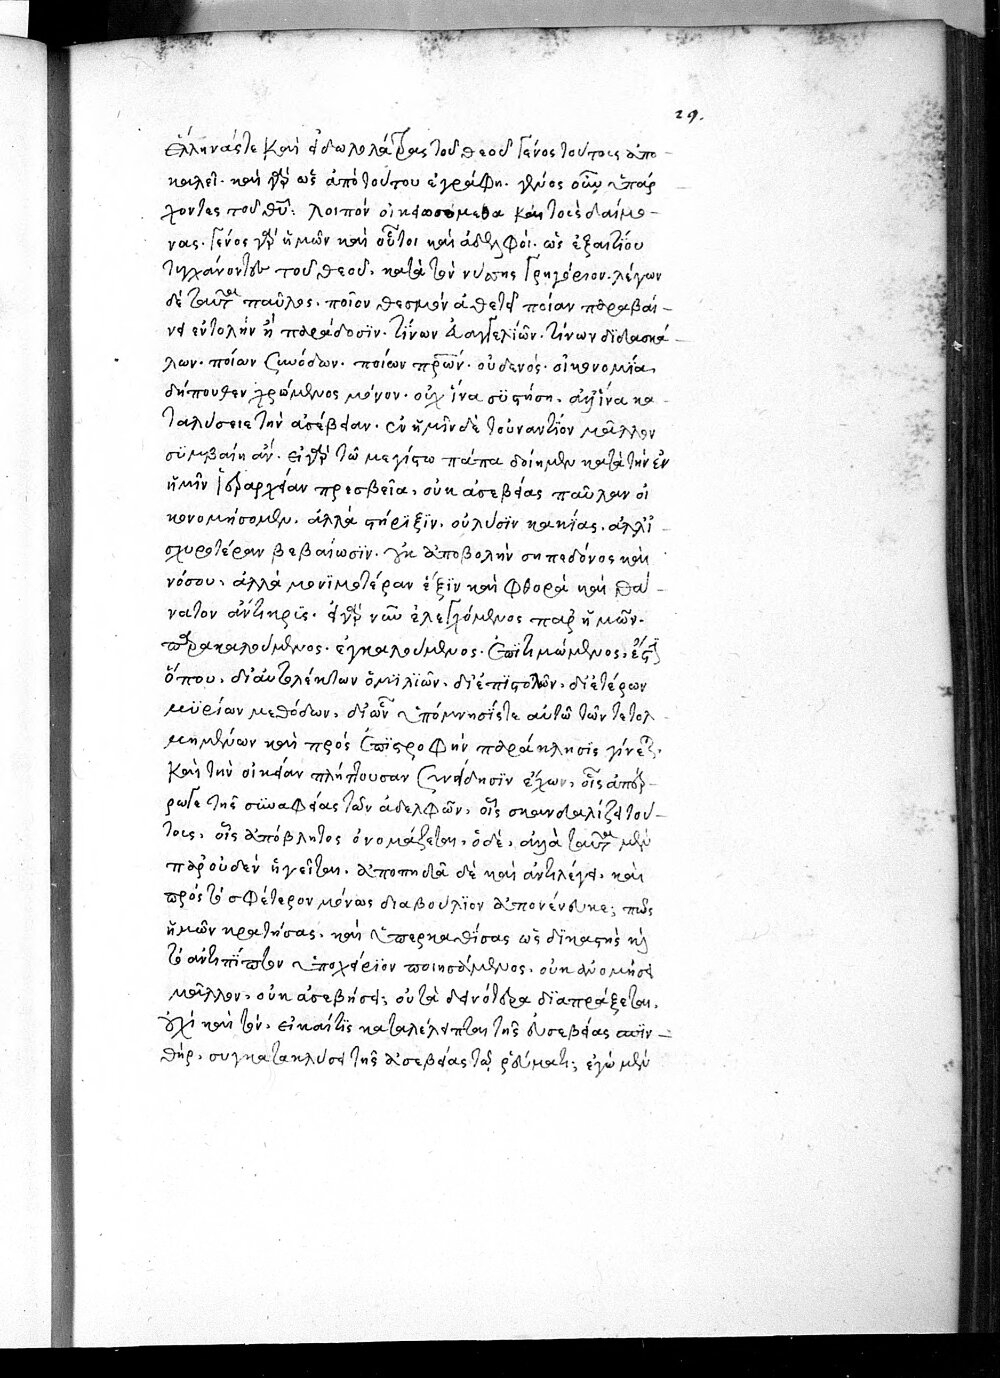 29.
ἑλληνάς τε καὶ εἰδωλολάτρας τοῦ θεοῦ γένος τούτοις ἀπο-
καλεῖ. καὶ γὰρ ὡς ἀπὸ τούτου ἐγράφη. γένος οὖν ὑπάρ-
χοντες τοῦ θῦ. λοιπὸν οἰκειωσόμεθα καὶ τοὺς δαίμο-
νας. γένος γὰρ ἡμῶν καὶ οὗτοι καὶ ἀδελφοί. ὡς ἐξ αἰτίου
τυγχάνοντες τοῦ θεοῦ, κατὰ τὸν νύσσης γρηγόριον. λέγων
δὲ ταῦτα παῦλος. ποῖον θεσμὸν ἀθετεῖ ποίαν παραβαί-
νει ἐντολὴν ἢ παράδοσϊν. τίνων εὐαγγελίων. τίνων διδασκά-
λων. ποίων συνόδων. ποίων πρων. οὐδενός. οἰκονομία
δήπουθεν χρώμενος μόνον. οὐχ ἵνα συστήση, ἀλλ' ἵνα κα-
ταλύσειε τὴν ἀσέβειαν. ἐν ἡμῖν δὲ τοὐναντίον μᾶλλον
συμβαίη ἄν. εἰ γὰρ τῶ μεγίστω πάπα δοίημεν κατὰ τὴν ἐν
ἡμῖν ἱεραρχίαν πρεσβεῖα, οὐκ ἀσεβείας παῦλαν οἰ
κονομήσομεν. ἀλλὰ στήριξϊν. οὐ λύσϊν κακίας, ἀλλ' ἰ-
σχυροτέραν βεβαίωσϊν. οὐκ ἀποβολὴν σηπεδόνος καὶ
νόσου, ἀλλὰ μονϊμοτέραν ἕξϊν καὶ φθορὰ καὶ θά-
νατον ἄντικρϊς. εἰ γὰρ νῦν ἐλεγχόμενος παρ' ἡμῶν.
παρακαλούμενος. ἐγκαλούμενος. ἐπϊτιμώμενος, ἔστϊ
ὅπου, δι' αὐτολέκτων ὁμιλϊῶν, δι' ἐπϊστολῶν, δι' ἑτέρων
μυρίων μεθόδων, δι' ὧν ὑπόμνησίς τε αὐτῶ τῶν τετολ-
μημένων καὶ πρὸς ἐπϊστροφὴν παράκλησϊς γίνεται.
καὶ τὴν οἰκείαν πλήττουσαν συνείδησϊν ἔχων, οἷς ἀπέρ-
ρωγε τῆς συναφείας τῶν ἀδελφῶν, οἷς σκανδαλίζει τού-
τοις, οἷς ἀπόβλητος ὀνομάζεται, ὅδε, ἀλλὰ ταῦτα μὲν
παρ' οὐδὲν ἡγεῖται. ἀποπηδᾶ δὲ καὶ ἀντιλέγει, καὶ
πρὸς τὸ σφέτερον μόνως διαβούλϊον ἀπονένευκε; πῶς
ἡμῶν κρατήσας, καὶ ὑπερκαθίσας ὡς δικαστὴς καὶ
τὸ ἀντιπῖπτον ὑποχείρϊον ποιησάμενος, οὐκ ἀνομήσει
μᾶλλον, οὐκ ἀσεβήσει; οὐ τὰ δεινότερα δϊαπράξεται,
οὐχὶ καὶ τὸν, εἰ καί τϊς καταλέλειπται τῆς εὐσεβείας σπϊν-
θήρ, συγκατακλύσει τῆς ἀσεβείας τῶ ῥεύματι; ἐγὼ μὲν